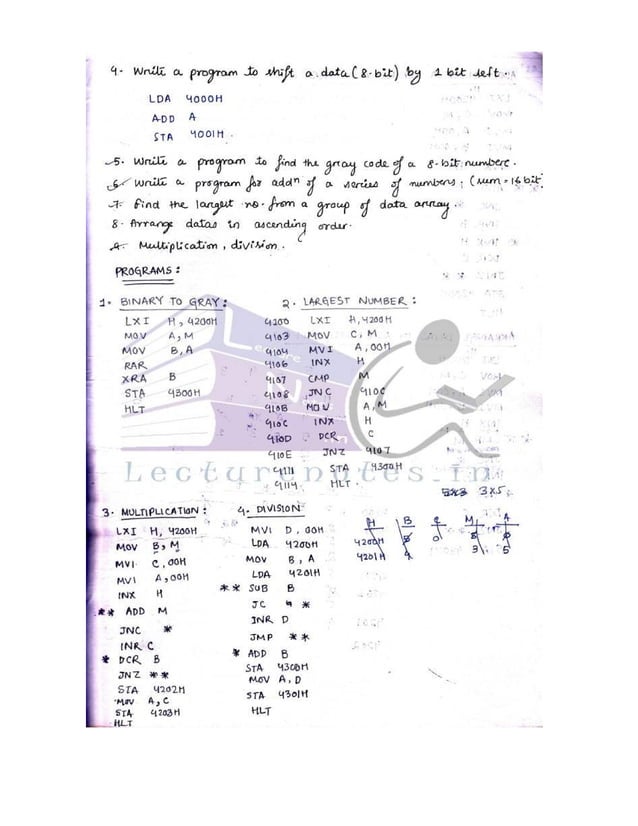 4. Write a program to shift a data (8-bit) by 1 bit left.
LDA 4000H
ADD A
STA 4001H.
5. Write a program to find the gray code of a 8-bit number.
6. Write a program for addn of a series of numbers. (sum = 16 bit)
7. Find the largest no. from a group of data array.
8. Arrange datas in ascending order.
9. Multiplication, division.
PROGRAMS:
1. BINARY TO GRAY:
LXI H, 4200H
MOV A, M
MOV B, A
RAR
XRA B
STA 4300H
HLT
2. LARGEST NUMBER:
4200 LXI H, 4200H
4103 MOV C, M
4104 MVI A, 00H
4106 INX H
4107 CMP M
4108 JNC 410C
410B MOV A, M
410C INX H
410D DCR C
410E JNZ 4107
4111 STA 4300H
4114 HLT.
Lecturenotes.in
3x5
3. MULTIPLICATION:
LXI H, 4200H
MOV B, M
MVI C, 00H
MVI A, 00H
INX H
** ADD M
JNC *
INR C
* DCR B
JNZ **
STA 4202H
MOV A, C
STA 4203H
HLT
4. DIVISION
MVI D, 00H
LDA 4200H
MOV B, A
LDA 4201H
** SUB B
JC *
INR D
JMP **
* ADD B
STA 4300H
MOV A, D
STA 4301H
HLT
H B C M A
4200H 0
4201H 4 3 5